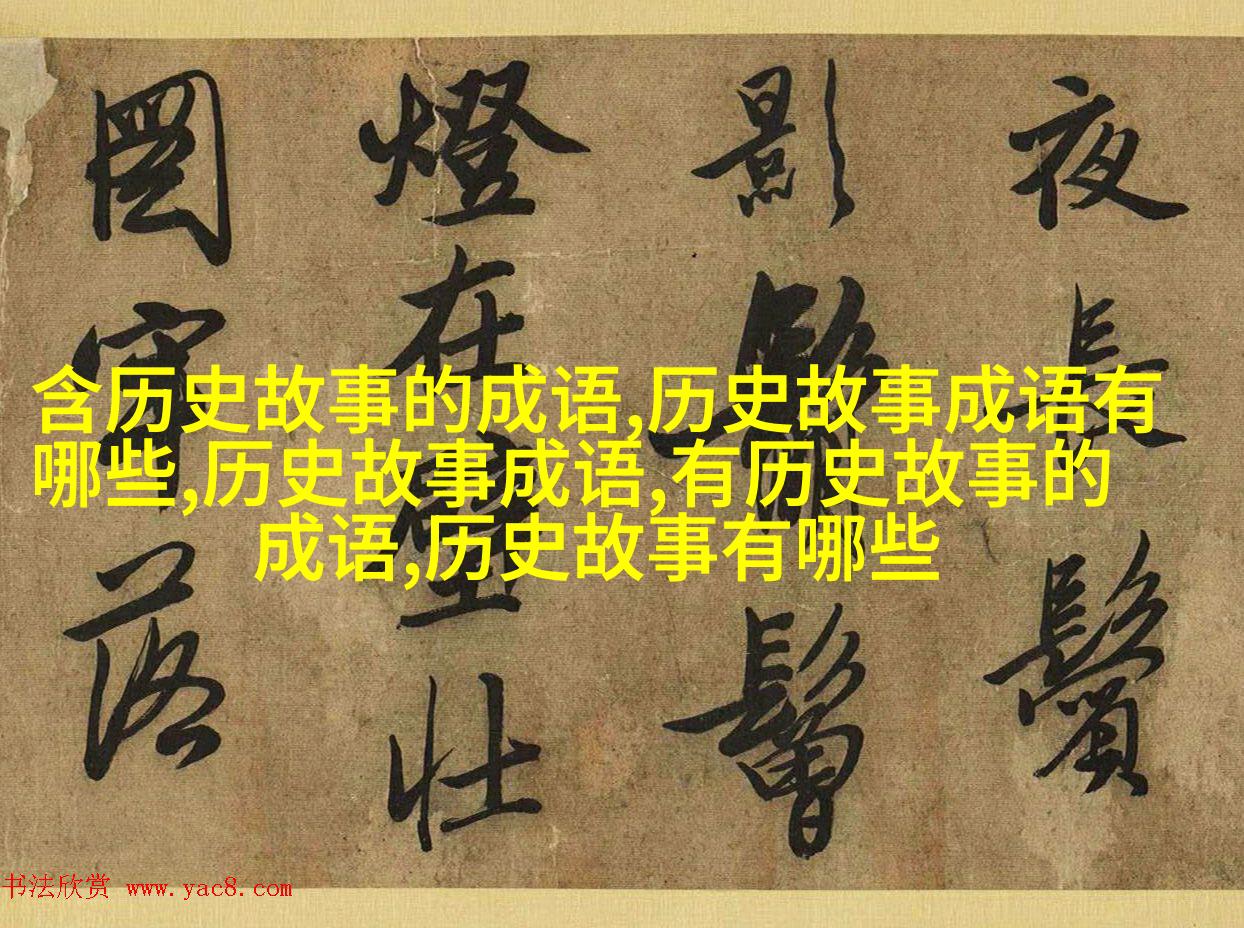 含历史故事的成语,历史故事成语有
哪些,历史故事成语,有历史故事的
成语,历史故事有哪些
夜長鬢
影鬅鬙
燈在壁壯
圖落
书法欣赏 www.yac8.com